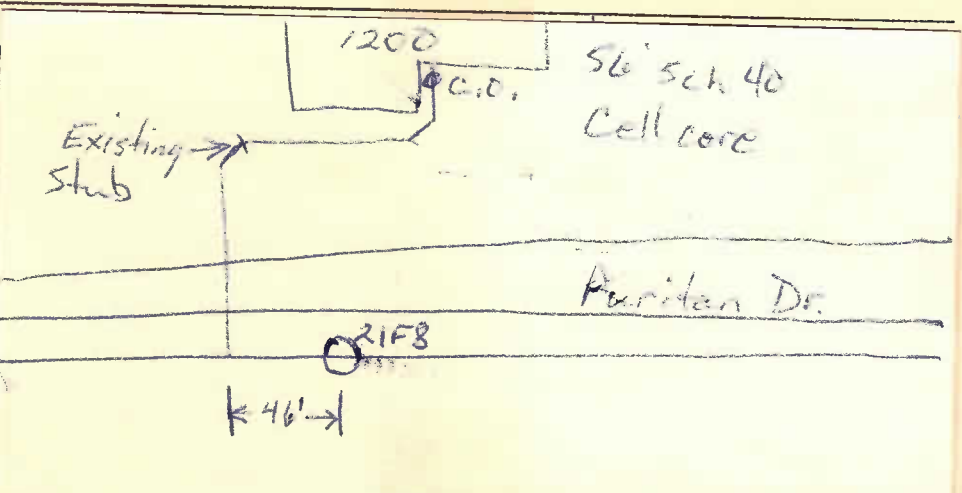 1200
C.O.
56' Sch 40
Cell core
Existing
Stub
Puritan Dr.
21F8
46'